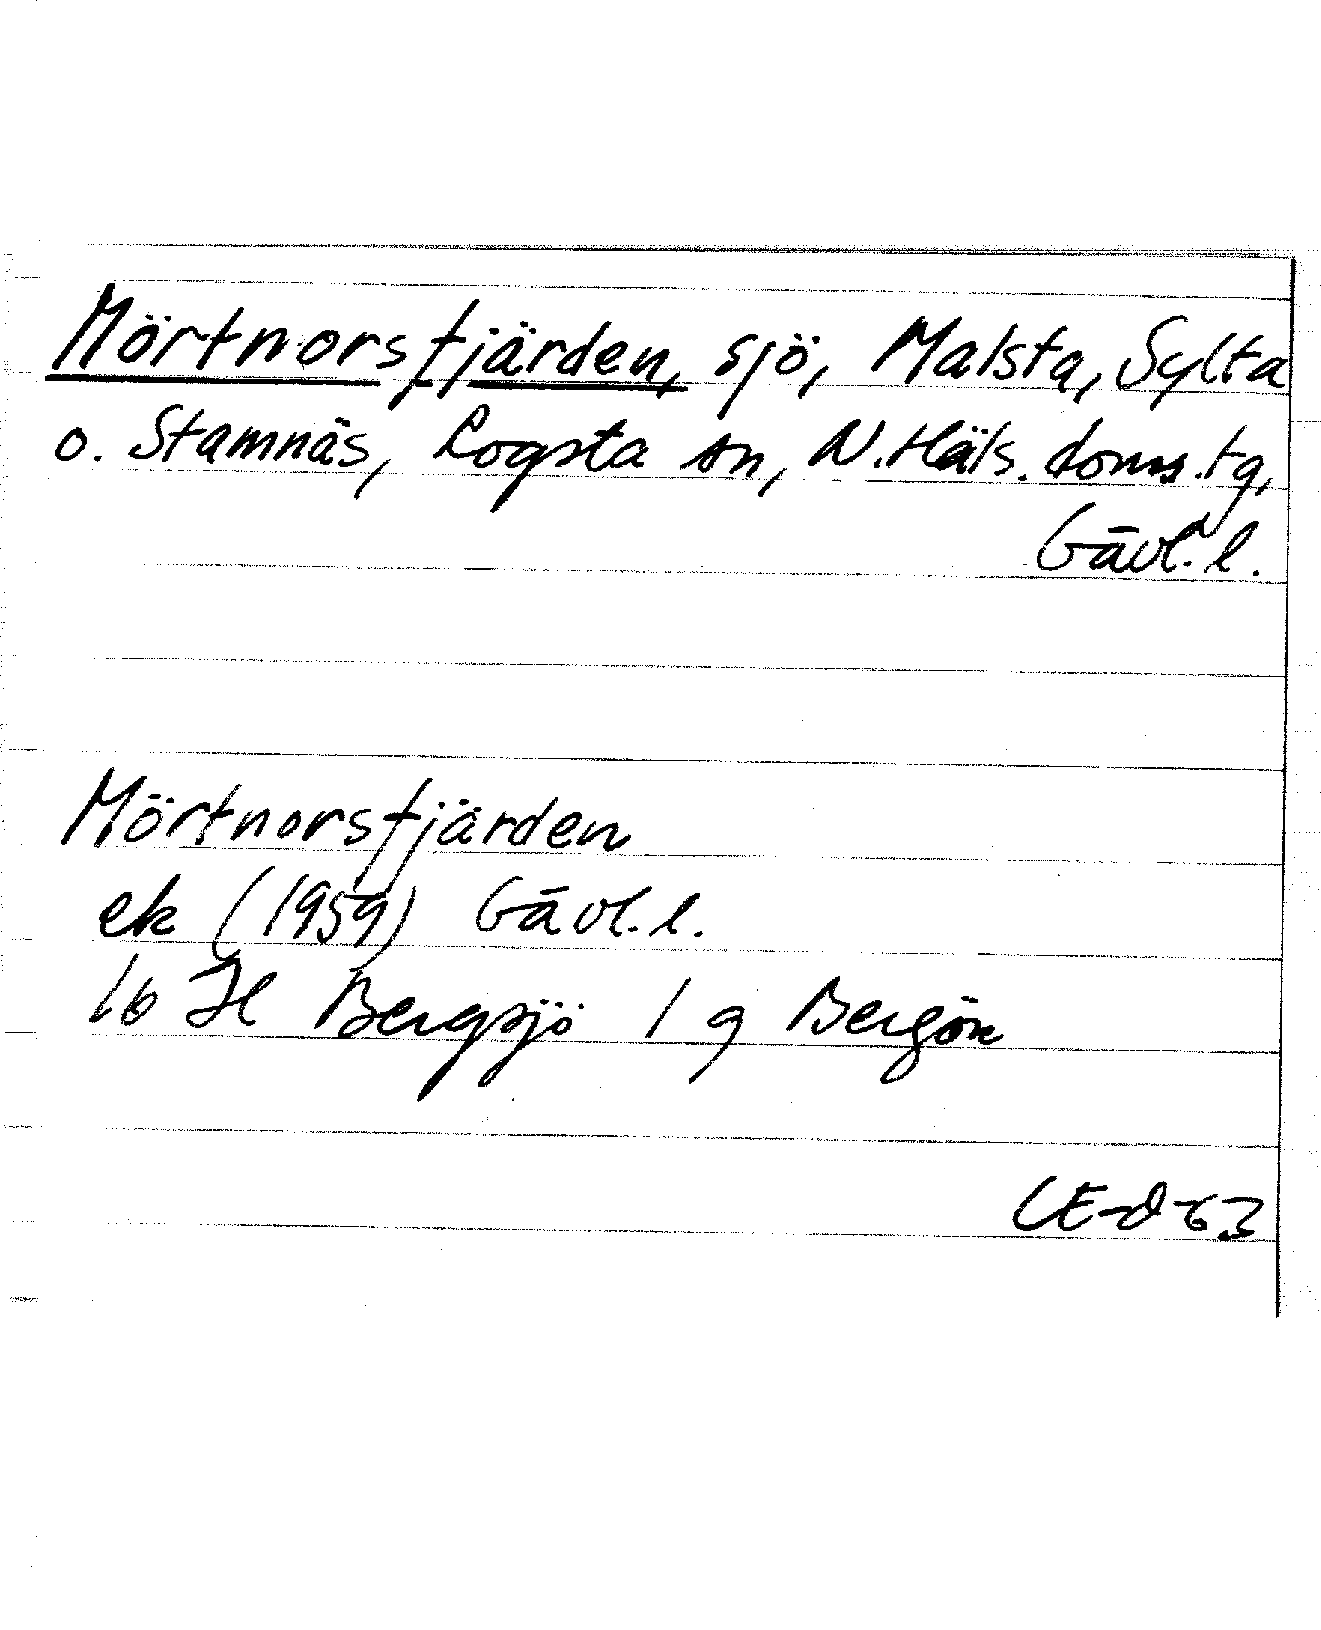 Mörtnorsfjärden, sjö, Malsta, Sylta
o. Stamnäs, Rogsta sn, N.Häls. doms.tg,
Gävl. l.
Mörtnorsfjärden
ek (1959) Gävl. l.
16 H Bergsjö 1 g Bergön
CE-d 63